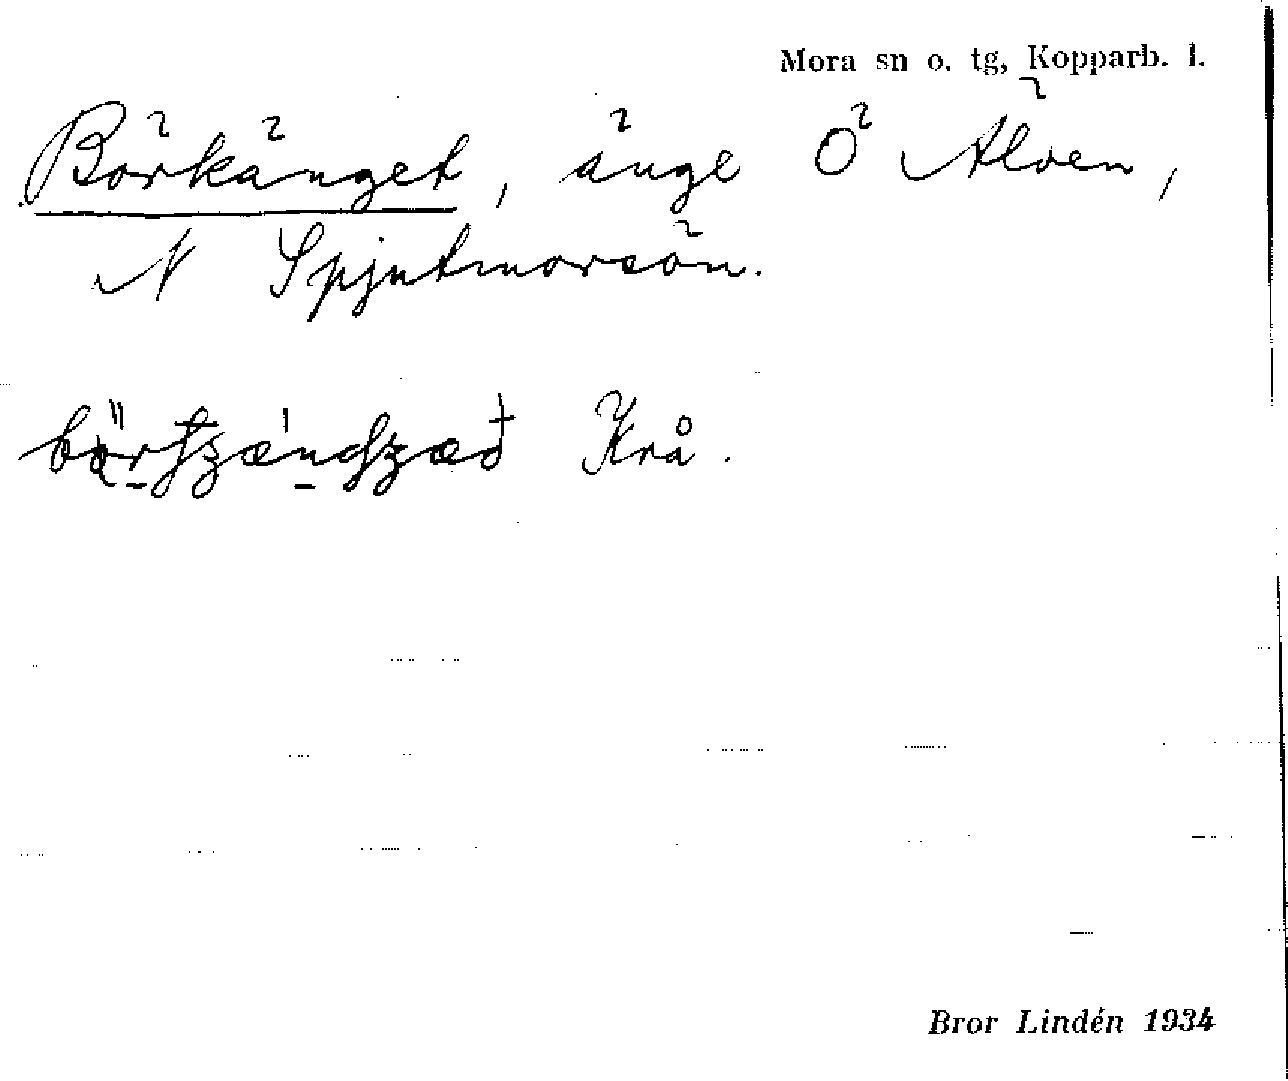 Mora sn o. tg, Kopparb. l.
Börkänget, änge Ö Älven,
N Spjutmorsön.
Krå.
Bror Lindén 1934